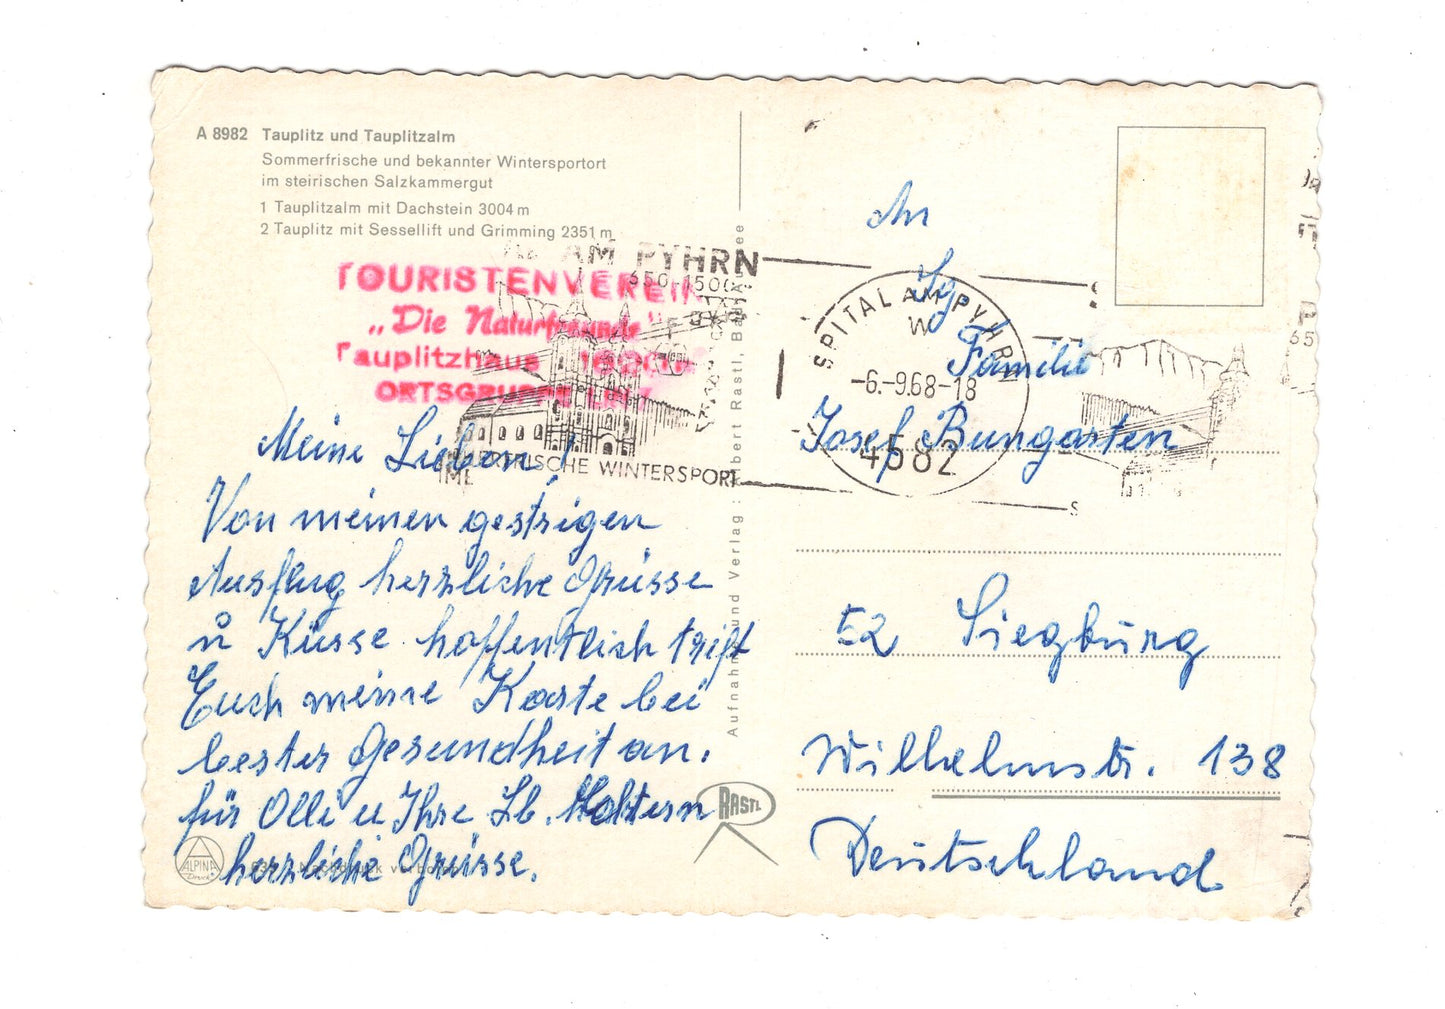 A 8982 Tauplitz und Tauplitzalm
Sommerfrische und bekannter Wintersportort
im steirischen Salzkammergut
1 Tauplitzalm mit Dachstein 3004 m
2 Tauplitz mit Sessellift und Grimming 2351 m
AM PYHRN
650-1500
TOURISTENVEREIN
„Die Naturfreunde"
Tauplitzhaus
ORTSGRUPPE
WINTERSPORT
Meine Lieben!
Von meinen gestrigen
Ausflug herzliche Grüsse
u Küsse hoffentlich trift
Euch meine Karte bei
bester Gesundheit an.
für Olli u Ihre Lb.
herzliche Grüsse.
ALPINA
Druck
Aufnahme und Verlag :
bert Rastl, Bad
see
RASTL
SPITAL AM PYHRN
-6.-9.68-18
4582
An
Familie
Josef Bungarten
52 Siegburg
Wilhelmstr. 138
Deutschland